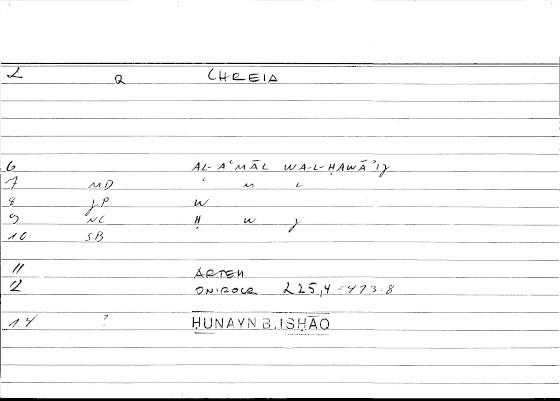 2 Q CHREIA
6 AL-AʿMĀL WA-L-ḤAWĀʾIJ
7 MD ʿ M L
8 JP W
9 NC Ḥ W J
10 SB
11 ARTEM
12 ONIROCR 225,4 = 473.8
14 ? ḤUNAYN B. ISḤĀQ